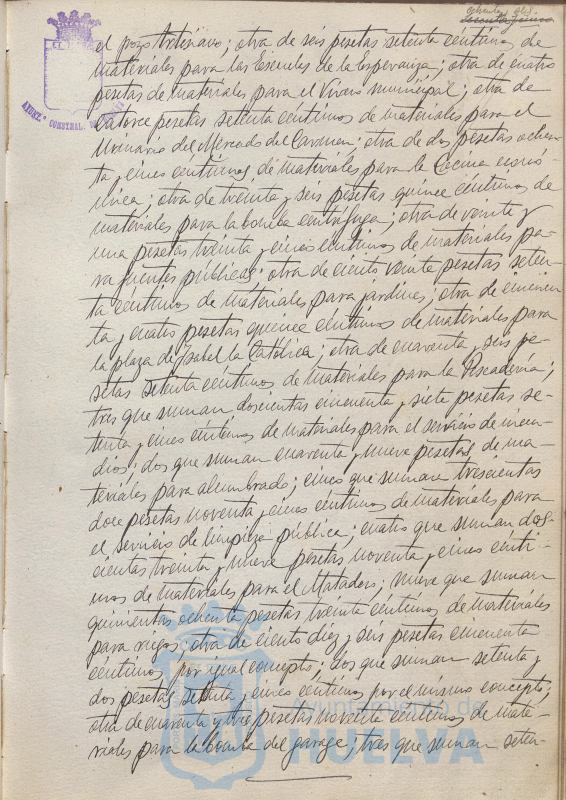 ochenta y dos.
el pozo Artesiano; otra de seis pesetas setenta céntimos de
materiales para las Escuelas de la Esperanza; otra de cuatro
pesetas de materiales para el Vivero municipal; otra de
catorce pesetas setenta céntimos de materiales para el
Urinario del Mercado del Carmen; otra de dos pesetas ochen-
ta y cinco céntimos de materiales para la Cocina econó-
mica; otra de treinta y seis pesetas quince céntimos de
materiales para la bomba centrífuga; otra de veinte y
una pesetas treinta y cinco céntimos de materiales pa-
ra fuentes públicas; otra de ciento veinte pesetas seten-
ta céntimos de materiales para jardines; otra de cincuen-
ta y cuatro pesetas quince céntimos de materiales para
la plaza de Isabel la Católica; otra de cuarenta y seis pe-
setas setenta céntimos de materiales para la Pescadería;
tres que suman doscientas cincuenta y siete pesetas se-
tenta y cinco céntimos de materiales para el servicio de incen-
dios; dos que suman cuarenta y nueve pesetas de ma-
teriales para alumbrado; cinco que suman trescientas
doce pesetas noventa y cinco céntimos de materiales para
el servicio de limpieza pública; cuatro que suman dos-
cientas treinta y nueve pesetas noventa y cinco cénti-
mos de materiales para el Matadero; nueve que suman
quinientas ochenta pesetas treinta céntimos de materiales
para riegos; otra de ciento diez y seis pesetas cincuenta
céntimos por igual concepto; dos que suman setenta y
dos pesetas setenta y cinco céntimos por el mismo concepto;
otra de cuarenta y tres pesetas noventa céntimos de mate-
riales para la bomba del garage; tres que suman seten-
AYUNT.º CONSTNAL. DE
Ayuntamiento de
HUELVA